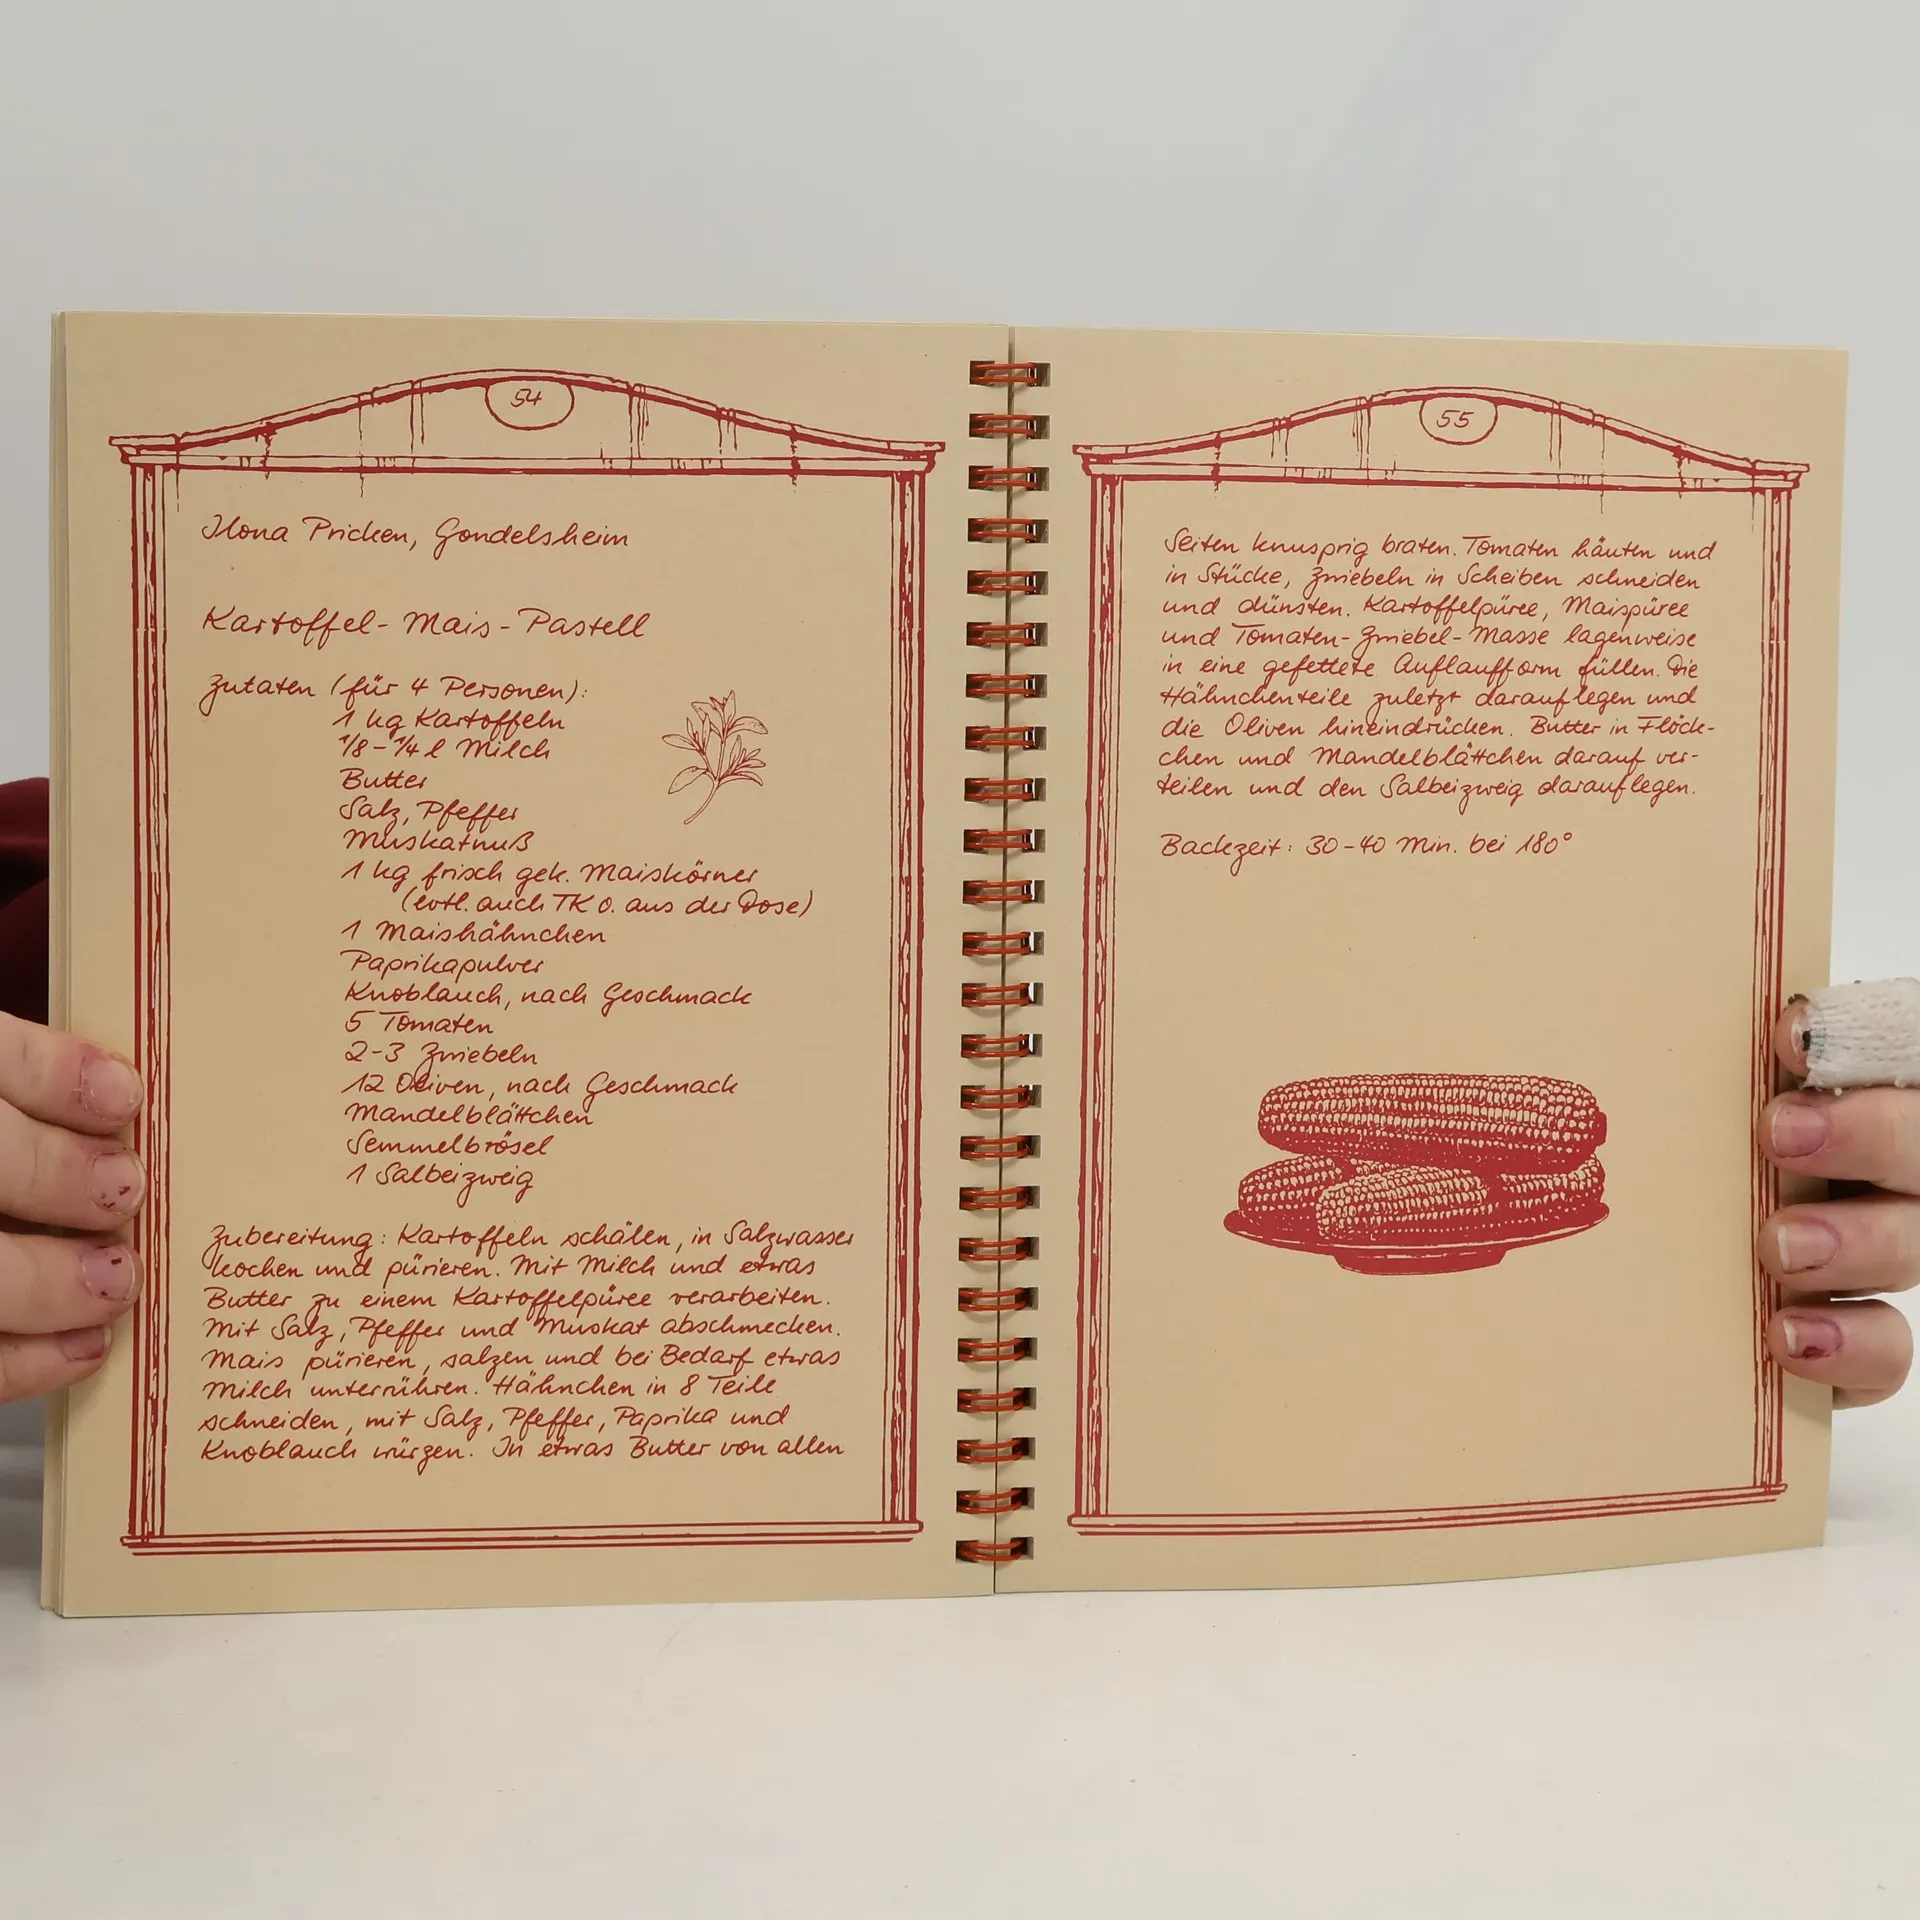 54
Ilona Pricken, Gondelsheim
Kartoffel-Mais-Pastell
Zutaten (für 4 Personen):
1 kg Kartoffeln
1/8-1/4 l Milch
Butter
Salz, Pfeffer
Muskatnuß
1 kg frisch gek. Maiskörner
(evtl. auch TK o. aus der Dose)
1 Maishähnchen
Paprikapulver
Knoblauch, nach Geschmack
5 Tomaten
2-3 Zwiebeln
12 Oliven, nach Geschmack
Mandelblättchen
Semmelbrösel
1 Salbeizweig
Zubereitung: Kartoffeln schälen, in Salzwasser
kochen und pürieren. Mit Milch und etwas
Butter zu einem Kartoffelpüree verarbeiten.
Mit Salz, Pfeffer und Muskat abschmecken.
Mais pürieren, salzen und bei Bedarf etwas
Milch unterrühren. Hähnchen in 8 Teile
schneiden, mit Salz, Pfeffer, Paprika und
Knoblauch würzen. In etwas Butter von allen
55
Seiten knusprig braten. Tomaten häuten und
in Stücke, Zwiebeln in Scheiben schneiden
und dünsten. Kartoffelpüree, Maispüree
und Tomaten-Zwiebel-Masse lagenweise
in eine gefettete Auflaufform füllen. Die
Hähnchenteile zuletzt darauflegen und
die Oliven hineindrücken. Butter in Flöck-
chen und Mandelblättchen darauf ver-
teilen und den Salbeizweig darauflegen.
Backzeit: 30-40 Min. bei 180°